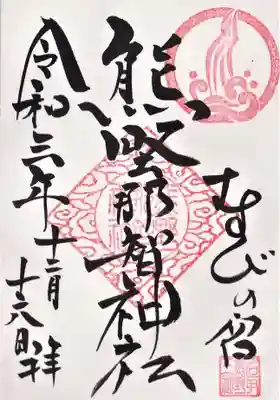 むすびの宮
熊野那智神社
令和三年十二月
十八日拝